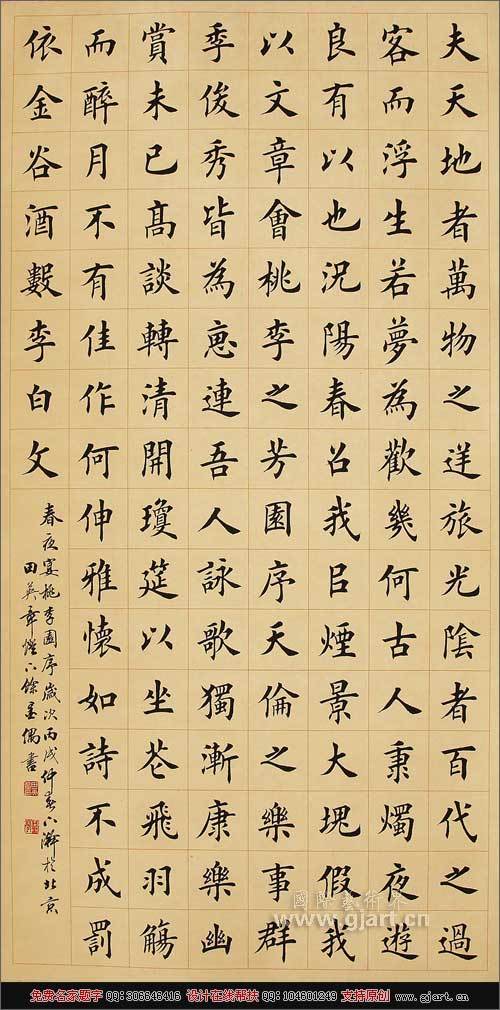 夫天地者萬物之逆旅光陰者百代之過
客而浮生若夢為歡幾何古人秉燭夜遊
良有以也況陽春召我㠯煙景大塊假我
以文章會桃李之芳園序天倫之樂事群
季俊秀皆為惠連吾人詠歌獨漸康樂幽
賞未已高談轉清開瓊筵以坐花飛羽觴
而醉月不有佳作何伸雅懷如詩不成罰
依金谷酒數李白文
春夜宴桃李園序歲次丙戌仲春下澣於北京
田英章燈下餘墨偶書
國際藝術界
www.gjart.cn
免费名家题字 QQ:306646416 设计在线帮扶 QQ:104601249 支持原创 www.gjart.cn